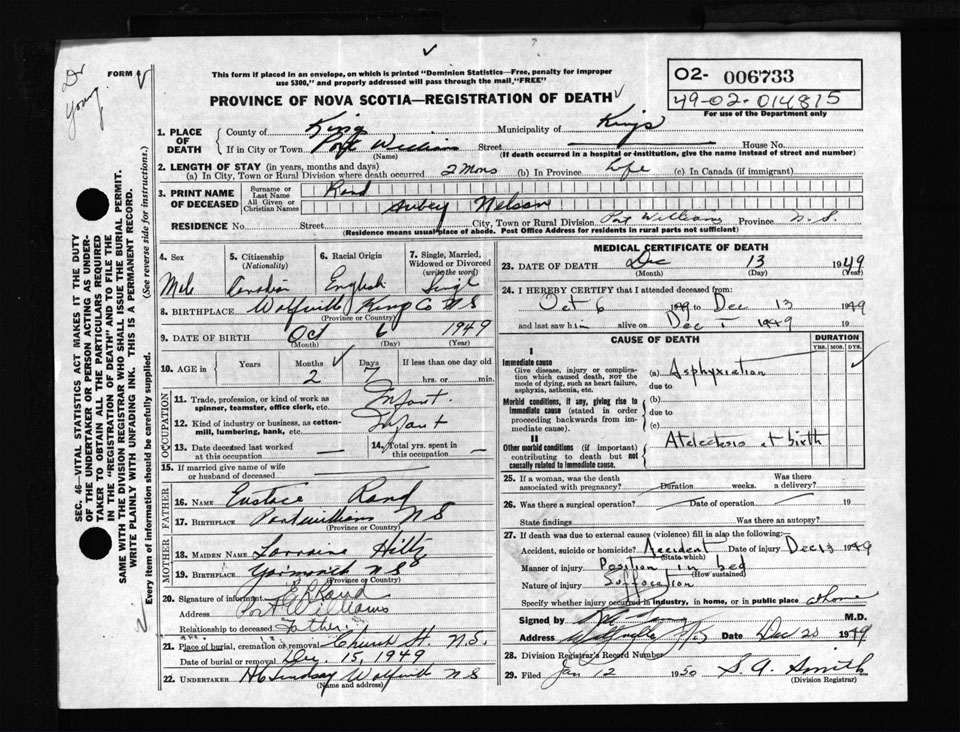 Dr
Young
FORM
This form if placed in an envelope, on which is printed "Dominion Statistics—Free, penalty for improper
use $300," and properly addressed will pass through the mail, "FREE"
PROVINCE OF NOVA SCOTIA—REGISTRATION OF DEATH
02- 006733
49-02-014815
For use of the Department only
1. PLACE OF DEATH County of Kings Municipality of Kings
If in City or Town Port Williams (Name) Street House No.
(If death occurred in a hospital or institution, give the name instead of street and number)
2. LENGTH OF STAY (in years, months and days)
(a) In City, Town or Rural Division where death occurred 2 Mons (b) In Province Life (c) In Canada (if immigrant)
3. PRINT NAME OF DECEASED Surname or Last Name Rand
All Given or Christian Names Aubey Nelson
RESIDENCE No. Street City, Town or Rural Division Port Williams Province N.S.
(Residence means usual place of abode. Post Office Address for residents in rural parts not sufficient)
4. Sex 5. Citizenship (Nationality) 6. Racial Origin 7. Single, Married, Widowed or Divorced (write the word)
Male Canadian English Single
8. BIRTHPLACE Wolfville Kings Co NS
(Province or Country)
9. DATE OF BIRTH Oct 6 1949
(Month) (Day) (Year)
10. AGE in Years Months Days If less than one day old
2 7 hrs. or min.
OCCUPATION
11. Trade, profession, or kind of work as spinner, teamster, office clerk, etc. Infant.
12. Kind of industry or business, as cotton-mill, lumbering, bank, etc. Infant
13. Date deceased last worked at this occupation — 14. Total yrs. spent in this occupation —
15. If married give name of wife or husband of deceased
FATHER
16. NAME Eustace Rand
17. BIRTHPLACE Portwilliams NS
(Province or Country)
MOTHER
18. MAIDEN NAME Lorraine Hiltz
19. BIRTHPLACE Yarmouth N.S
(Province or Country)
20. Signature of informant E R Rand
Address Port Williams
Relationship to deceased Father.
21. Place of burial, cremation or removal Church St. N.S.
Date of burial or removal Dec. 15, 1949
22. UNDERTAKER H C Lindsay Wolfville NS
(Name and address)
MEDICAL CERTIFICATE OF DEATH
23. DATE OF DEATH Dec 13 1949
(Month) (Day) (Year)
24. I HEREBY CERTIFY that I attended deceased from:
Oct 6 1949 to Dec 13 1949
and last saw him alive on Dec 1 1949 19
CAUSE OF DEATH DURATION
YRS. MOS. DYS.
I
Immediate cause
Give disease, injury or complication which caused death, NOT the mode of dying, such as heart failure, asphyxia, asthenia, etc.
(a) Asphyxiation
due to
Morbid conditions, if any, giving rise to immediate cause (stated in order proceeding backwards from immediate cause).
(b)
due to
(c)
II
Other morbid conditions (if important) contributing to death but not causally related to immediate cause.
Atelectosis at birth
25. If a woman, was the death associated with pregnancy? Duration weeks. Was there a delivery?
26. Was there a surgical operation? Date of operation 19
State findings Was there an autopsy?
27. If death was due to external causes (violence) fill in also the following:
Accident, suicide or homicide? Accident Date of injury Dec 13 1949
(State which)
Manner of injury Position in bed
(How sustained)
Nature of injury Suffocation
Specify whether injury occurred in industry, in home, or in public place at home
Signed by M.D.
Address Wolfville N.S. Date Dec 20 1949
28. Division Registrar's Record Number
29. Filed Jan 12 1950 S. A. Smith
(Division Registrar)
SEC. 46—VITAL STATISTICS ACT MAKES IT THE DUTY
OF THE UNDERTAKER OR PERSON ACTING AS UNDER-
TAKER TO OBTAIN ALL THE PARTICULARS REQUIRED
IN THE "REGISTRATION OF DEATH" AND TO FILE THE
SAME WITH THE DIVISION REGISTRAR WHO SHALL ISSUE THE BURIAL PERMIT.
WRITE PLAINLY WITH UNFADING INK. THIS IS A PERMANENT RECORD.
Every item of information should be carefully supplied. (See reverse side for instructions.)